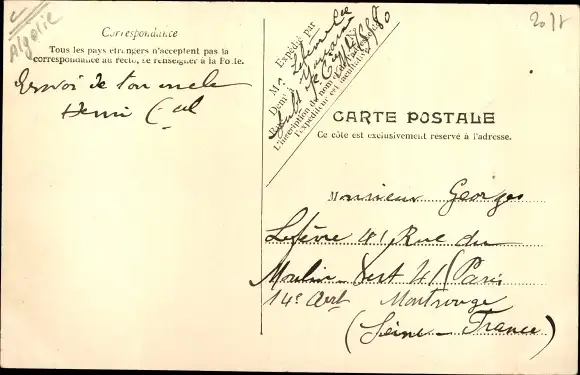 Algérie
20/8
Correspondance
Tous les pays étrangers n'acceptent pas la
correspondance au recto, se renseigner à la Poste.
Envoi de ton oncle
Henri
Expédié par
M
Demt à
Rue
L'inscription du nom et de l'adresse de
l'expéditeur est facultative
CARTE POSTALE
Ce côté est exclusivement reservé à l'adresse.
Monsieur Georges
Lefèvre 41 Rue du
Moulin-Vert 41 (Paris
14e Arrt Montrouge
(Seine-France)